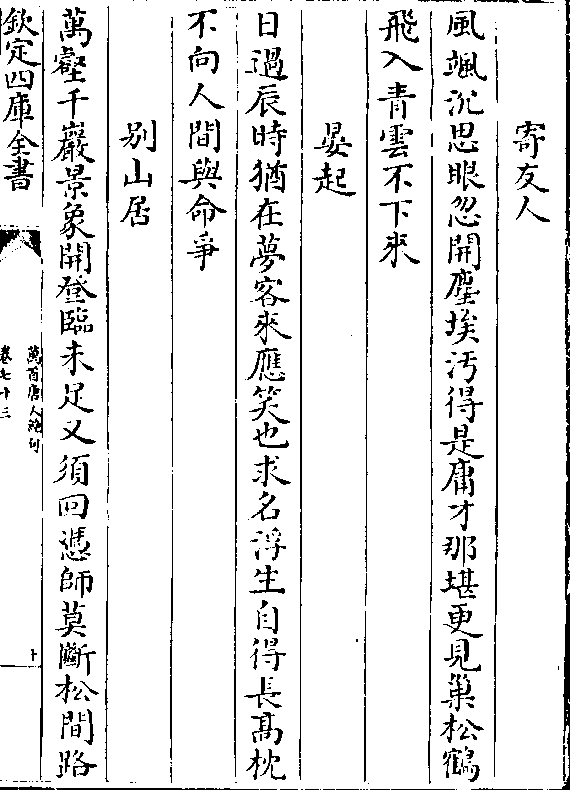 寄友人
風颯沉思眼忽開塵埃汚得是庸才那堪更見巢松鶴
飛入青雲不下來
晏起
日過辰時猶在夢客來應笑也求名浮生自得長髙枕
不向人間與命爭
别山居
萬壑千巖景象開登臨未足又須回憑師莫斷松間路
欽定四庫全書
萬首唐人絶句
卷七十三
十